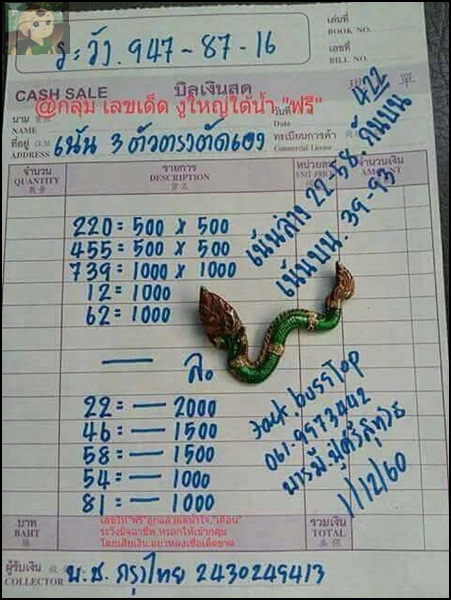 เล่มที่
BOOK NO.
ระวัง. 947-87-16
เลขที่
BILL NO.
CASH SALE บิลเงินสด
@กลุ่ม เลขเด็ด งูใหญ่ใต้น้ำ "ฟรี"
นาม
NAME
วันที่
Date
ที่อยู่
ADDRESS
เน้น 3 ตัวตรงตัดเอง
ทะเบียนการค้า
Commercial License
422
เน้นล่าง 22-58. กันบน
เน้นบน. 39-93
จำนวน
QUANTITY
รายการ
DESCRIPTION
หน่วยละ
UNIT PRICE
จำนวนเงิน
AMOUNT
220 = 500 x 500
455 = 500 x 500
739 = 1000 x 1000
12 = 1000
62 = 1000
— ล.
22 = — 2000
46 = — 1500
58 = — 1500
54 = — 1000
81 = — 1000
Jack.bussTop
061-9973442
บารมี.ปู่ศรีสุทโธ
1/12/60
บาท
BAHT
เลขให้"ฟรี"ถูกแล้วแต่น้ำใจ."เตือน"
ระวังมิจฉาชีพ.หลอกให้เข้ากลุ่ม
โดยเสียเงิน.อย่าหลงเชื่อเด็ดขาด
รวมเงิน
TOTAL
ผู้รับเงิน
COLLECTOR
บ.ช. กรุงไทย 2430249413